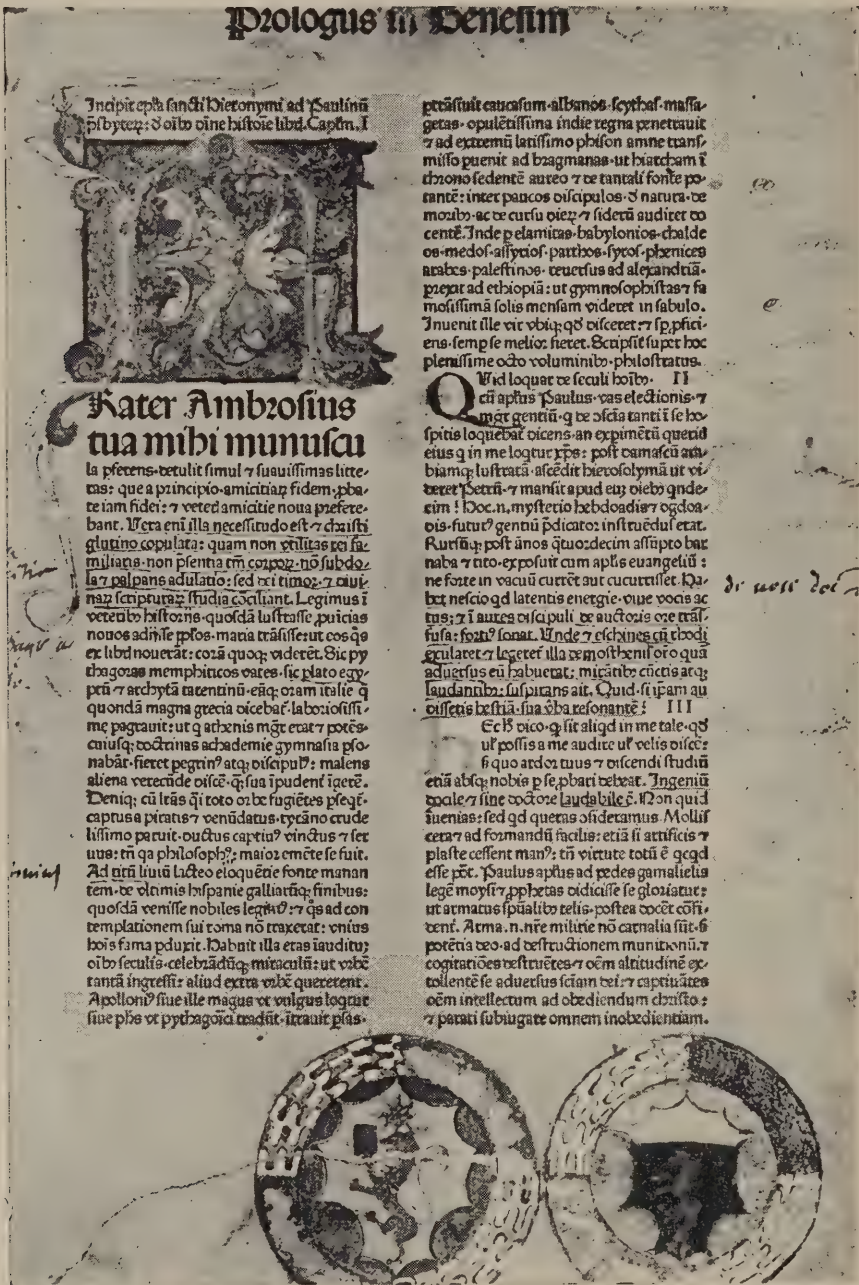 Prologus in Genesim
Incipit epl̃a sancti Hieronymi ad Paulinũ
p̃sbyteꝝ: ð oĩbꝰ diuĩe histoṙie libris. Capĩm. I
Rater Ambrosius
tua mihi munuscu
la ꝑferens·detulit simul ⁊ suauissimas litte-
ras: que a principio·amicitiaꝝ fidem·ꝓba-
te iam fidei: ⁊ veteꝝ amicitie noua prefere-
bant. Uera eni illa necessitudo est·⁊ christi
glutino copulata: quam non vtilitas rei fa-
miliaris·non p̃sentia tm̃ corpoꝝ·nõ subdo-
la ⁊ palpans adulatio: sed dei timor·⁊ diui-
naꝝ scripturaꝝ studia cõciliant. Legimus ĩ
veteribꝰ historijs·quosdã lustrasse ꝓuicias
nouos adijsse pp̃los·maria trãsisse: ut eos q̃s
ex libris nouerãt: corã quoqꝫ viderẽt. Sic py
thagoras memphiticos vates·sic plato egy-
ptũ ⁊ archytã tarentinũ·eãqꝫ oram italie q̃
quondã magna grecia dicebat̃·laboriosissi-
me pagrauit: ut q athenis mgr̃ erat ⁊ potẽs·
cuiusqꝫ doctrinas achademie gymnasia pso-
nabãt·fieret pegrinꝰ atqꝫ discipulꝰ: malens
aliena verecũde discẽ·qꝫ sua ĩpudenť ĩgerẽ.
Deniqꝫ cũ lr̃as q̃i toto orbe fugiẽtes pseqt̃·
captus a piratis ⁊ venũdatus·tyrãno crude
lissimo paruit·ductus captiuꝰ vinctus ⁊ ser
uus: tñ qa philosophꝰ: maior emẽte se fuit.
Ad titũ liuiũ lacteo eloquẽtie fonte manan
tem·de vltimis hispanie galliarũqꝫ finibus:
quosdã venisse nobiles legimꝰ: ⁊ q̃s ad con
templationem sui roma nõ traxerat: vnius
hoĩs fama pduxit. Habuit illa etas ĩauditũ
oĩbꝰ seculis·celebrãdũqꝫ miraculũ: ut vrbẽ
tantã ingressi: aliud extra vrbẽ quererent.
Apolloniꝰ siue ille magus vt vulgus loqtur
siue ph̃s vt pythagorici tradũt·ĩtrauit psas·
ptrãsiuit caucasum·albanos·scythas·massa-
getas·opulẽtissima indie regna penetrauit
⁊ ad extremũ latissimo phison amne trans-
misso puenit ad bragmanas·ut hiarcham ĩ
throno sedentẽ aureo ⁊ de tantali fonte po-
tantẽ: inter paucos discipulos·ð natura·de
moribꝰ·ac de cursu dieꝝ ⁊ siderũ audiret do
centẽ. Inde p elamitas·babylonios·chalde
os·medos·assyrios·parthos·syros·phenices
arabes·palestinos·reuersus ad alexandriã·
prexit ad ethiopiã: ut gymnosophistas ⁊ fa
mosissimã solis mensam videret in sabulo.
Inuenit ille vir vbiqꝫ qð disceret: ⁊ sp̃ ꝓfici-
ens·semp se melior fieret. Scripsit super hoc
plenissime octo voluminibꝰ·philostratus.
QUid loquar de seculi hoĩbꝰ· II
cũ apl̃us Paulus·vas electionis·⁊
mgr̃ gentiũ·q de ↄscia tanti ĩ se ho-
spitis loquebat̃ dicens·an expimẽtũ queritis
eius q in me loqtur xp̃s: post damascũ ara-
biamqꝫ lustratã·ascẽdit hierosolymã ut vi-
deret Petrũ·⁊ mansit apud eũ diebꝰ qnde-
cim! Hoc.n.mysterio hebdoadis ⁊ ogdoa-
dis·futurꝰ gentiũ p̃dicator instruẽdus erat.
Rursũqꝫ post ãnos q̃tuordecim assũpto bar
naba ⁊ tito·exposuit cum apl̃is euangeliũ:
ne forte in vacuũ curreret aut cucurrisset. Ha-
bet nescio qd latentis energie·viue vocis ac
tus: ⁊ ĩ aures discipuli de auctoris ore trãs-
fusa: fortiꝰ sonat. Unde ⁊ eschines cũ rhodi
exularet ⁊ legeret̃ illa demosthenis orõ quã
aduersus eũ habuerat: mirãtibꝰ cũctis atqꝫ
laudantibꝰ: suspirans ait. Quid·si ip̃am au
dissetis bestiã·sua v̾ba resonantẽ! III
Ec hꝰ dico·ꝙ sit aliqd in me tale·qð
ul̃ possis a me audire ul̃ velis discẽ:
s̃i quo ardor tuus ⁊ discendi studiũ
etiã absqꝫ nobis p se ꝓbari debeat. Ingeniũ
docile ⁊ sine doctore laudabile ẽ. Non quid
ĩuenias: sed qd queras ↄsideramus. Mollis
cera ⁊ ad formandũ facilis: etiã si artificis ⁊
plaste cessent manꝰ: tñ virtute totũ ẽ qcqd
esse põt. Paulus apl̃us ad pedes gamalielis
legẽ moysi ⁊ ꝓphetas didicisse se gloriatur:
ut armatus spũalibꝰ telis·postea docẽt cõfi-
dent̃. Arma.n.nr̃e militie nõ carnalia sũt·s̃
potẽtia deo·ad destructionem munitionũ·⁊
cogitatiões destruẽtes ⁊ oẽm altitudinẽ ex-
tollentẽ se aduersus sciam dei: ⁊ captiuãtes
oẽm intellectum ad obediendum christo:
⁊ parati subiugare omnem inobedientiam.